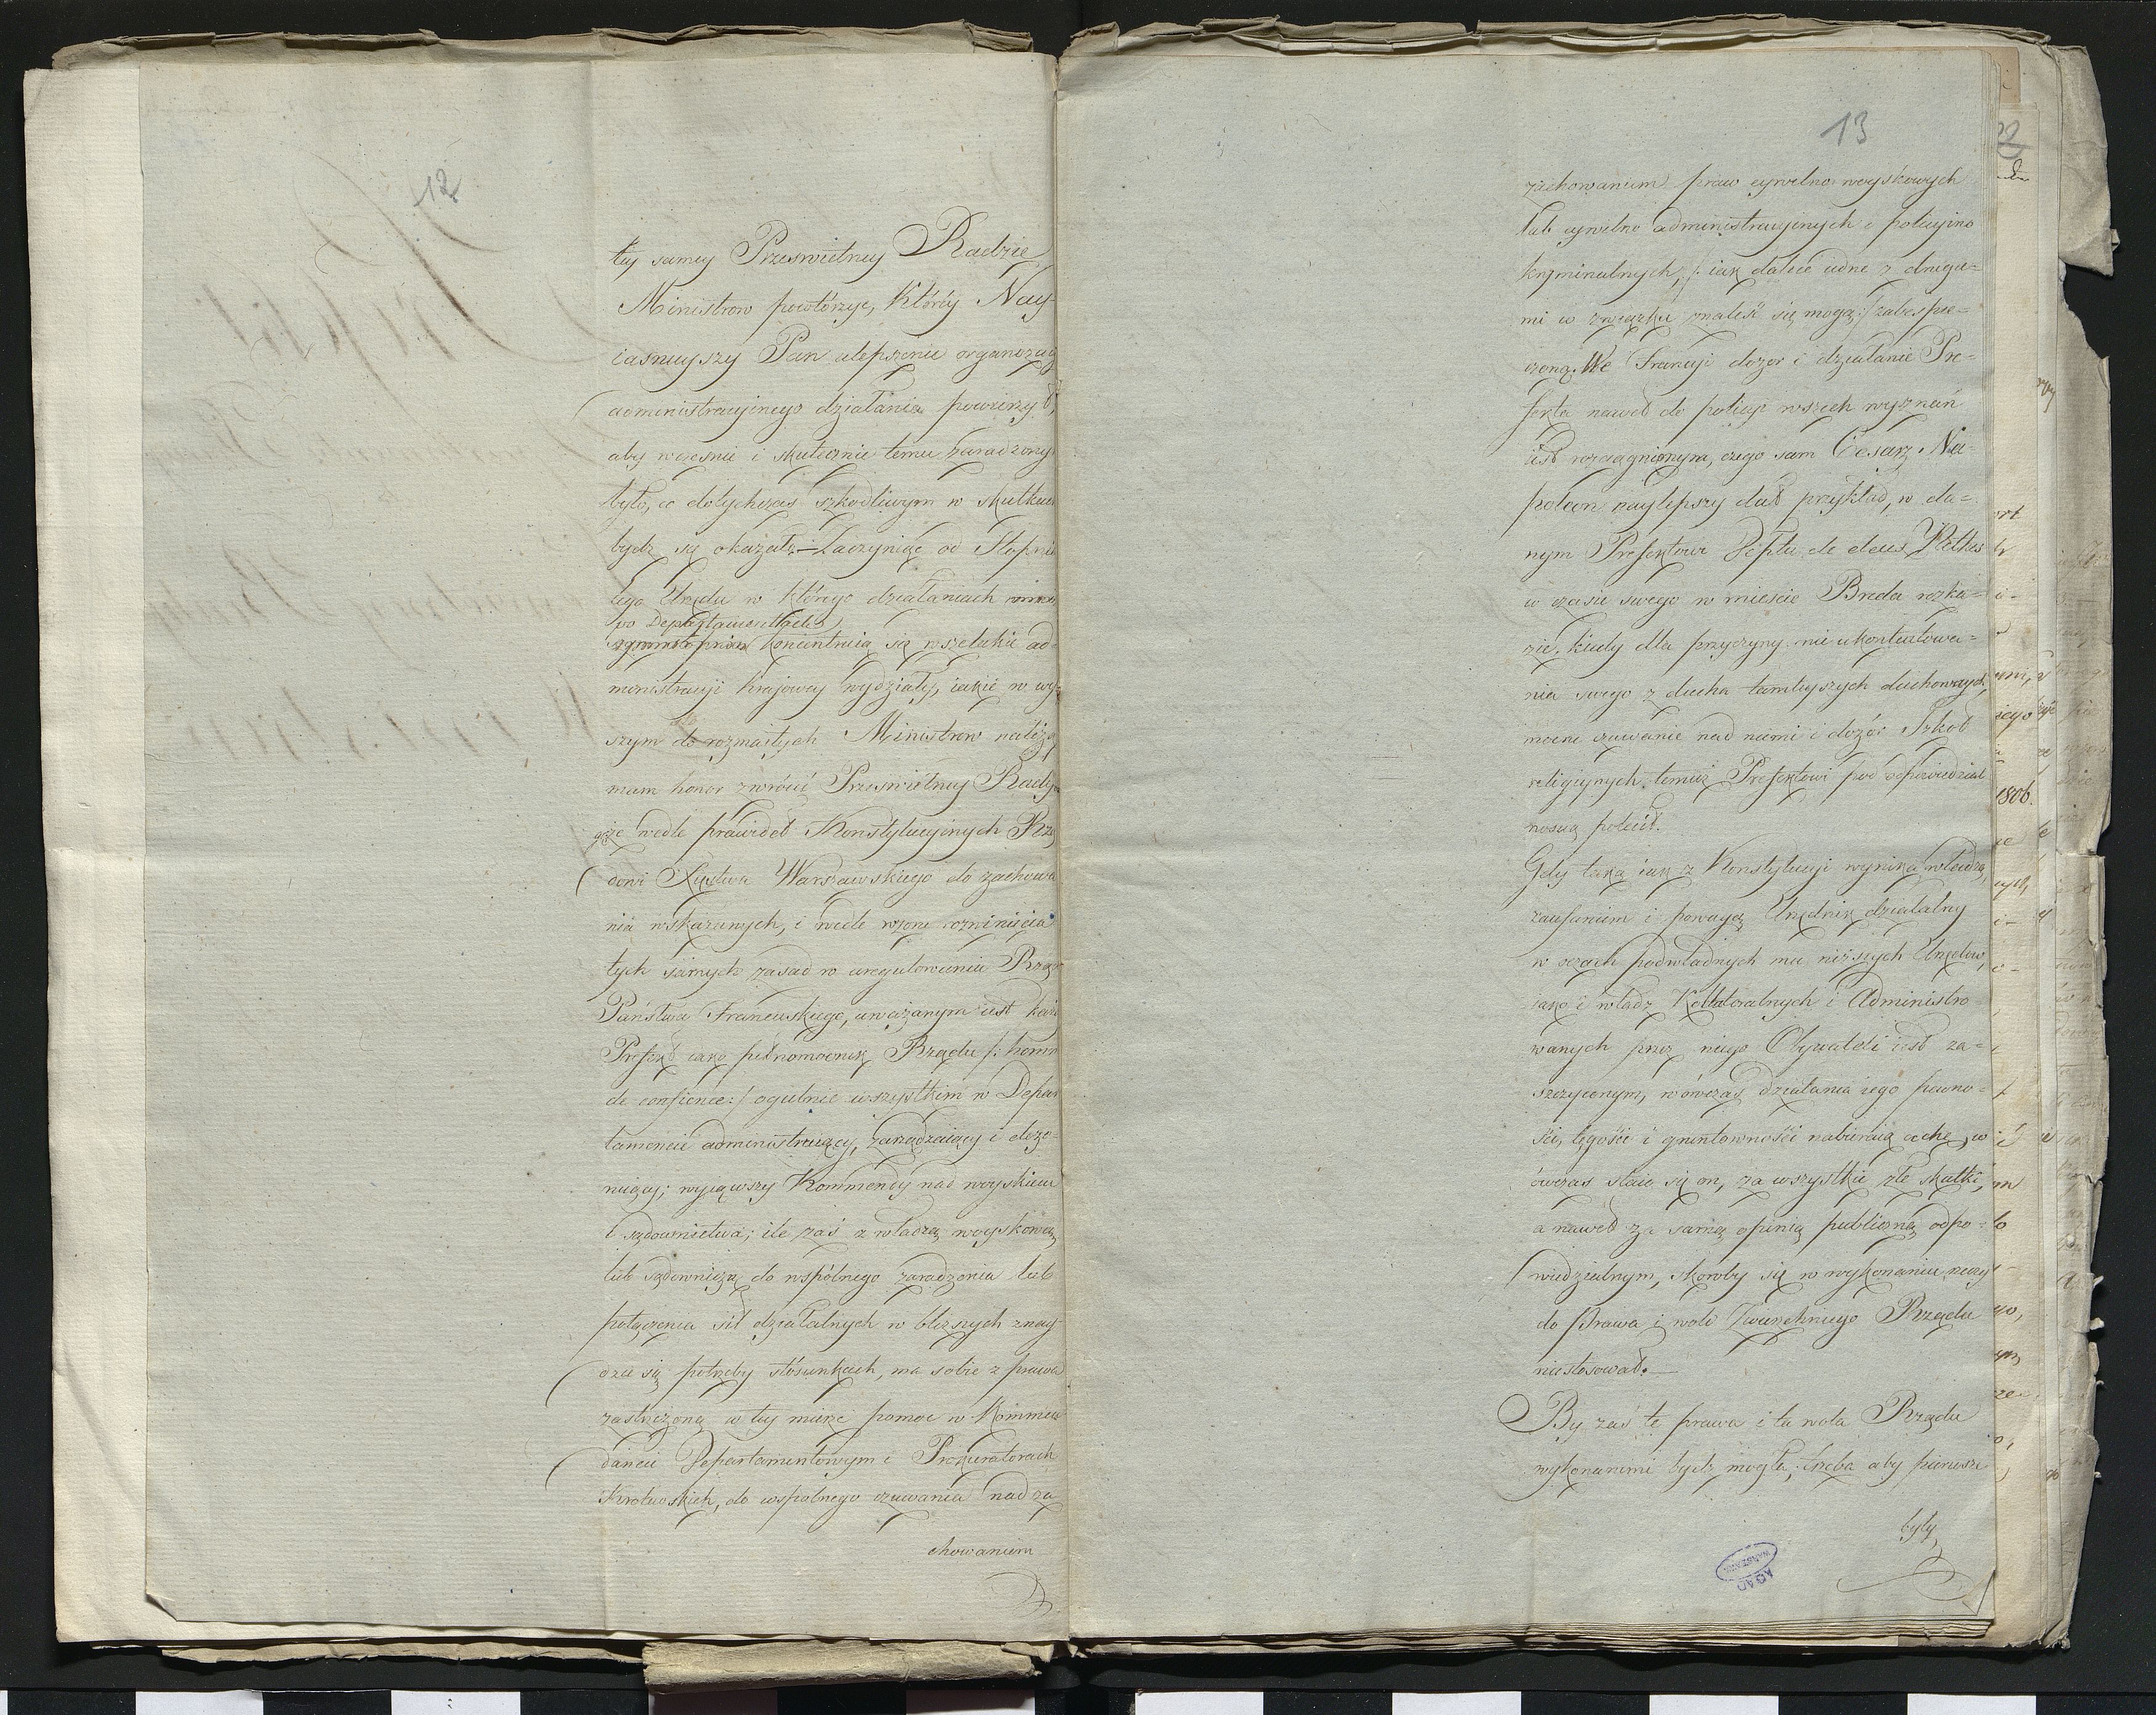 12
tey samey Prześwietney Radzie
Ministrow powtórzyć, którey Nay-
iasnieyszy Pan ulepszenie organizacyi
administracyinego działania powierzył,
aby wcześnie i skutecznie temu zaradzony
było, co dotychczas szkodliwym w skutkach
bydz się okazało – Zaczynaiąc od Stopnia
tego Urzędu w którego działaniach
po Departamentach
koncentruią się wszelakie ad-
ministracyi kraiowey wydziały, iakie w wy-
szym do rozmaitych Ministrow należą
mam honor zwrócić Prześwietney Rady
gę że wedle prawideł Konstytucyinych Rzą
dowi Xięstwa Warszawskiego do zachowa
nia wskazanych, i wedle wzoru rozwinięcia
tych samych zasad w uregulowaniu Rządu
Państwa Francuskiego, uważanym iest każdy
Prefekt iako pełnomocnik Rządu /: homme
de confience:/ ogulnie wszystkim w Depar
tamencie administruiący, zarządzaiący i dozo-
ruiący; wyiąwszy Kommendy nad woyskiem
i sądownictwa; ile zaś z władzą woyskową
lub sądowniczą do wspólnego zaradzenia lub
połączenia sił działalnych w bliższych znay-
dzie się potrzeby stósunkach, ma sobie z prawa
zastrzeżoną w tey mierze pomoc w Kommen
dancie Departamentowym i Prokuratorach
Krolewskich, do wspolnego czuwania nad za
chowaniem
13
zachowaniem praw cywilno woyskowych
lub cywilno administracyinych i policyino
kryminalnych, /: iak dalece iedne z drugie-
mi w związku znaleść się mogą:/ zabespie-
czoną. We Francyi dozor i działanie Pre-
fekta nawet do policyi wszech wyznań
iest rozciągnionym, czego sam Cesarz Na-
poleon naylepszy dał przykład, w da-
nym Prefektowi Deptu de deux Nethes
w czasie swego w mieście Breda rozka-
zie, kiedy dla przyczyny nieukontentowa-
nia swego z ducha tamteyszych duchownych,
mocne czuwanie nad niemi i dozór Szkoł
religiynych temuż Prefektowi pod odpowiedzial
nością polecił.
Gdy taką iak z Konstytucyi wynika władzą,
zaufaniem i powagą Urzędnik działalny
w oczach podwładnych mu niższych Urzędow,
iako i władz Kollateralnych i Administro
wanych przez niego Obywateli iest za-
szczyconym, wówczas działania iego pewno-
ści, tęgości i gruntowności nabieraią cechę, w
ówczas staie się on, za wszystkie złe skutki,
a nawet za samą opinią publiczną odpo-
wiedzialnym, skoroby się w wykonaniu rzeczy
do Prawa i woli Zwierzchniego Rządu
niestosował. —
By zaś te prawa i ta wola Rządu
wykonanemi bydz mogła, trzeba aby pierwsze
były
AGAD
WARSZAWA
1806.